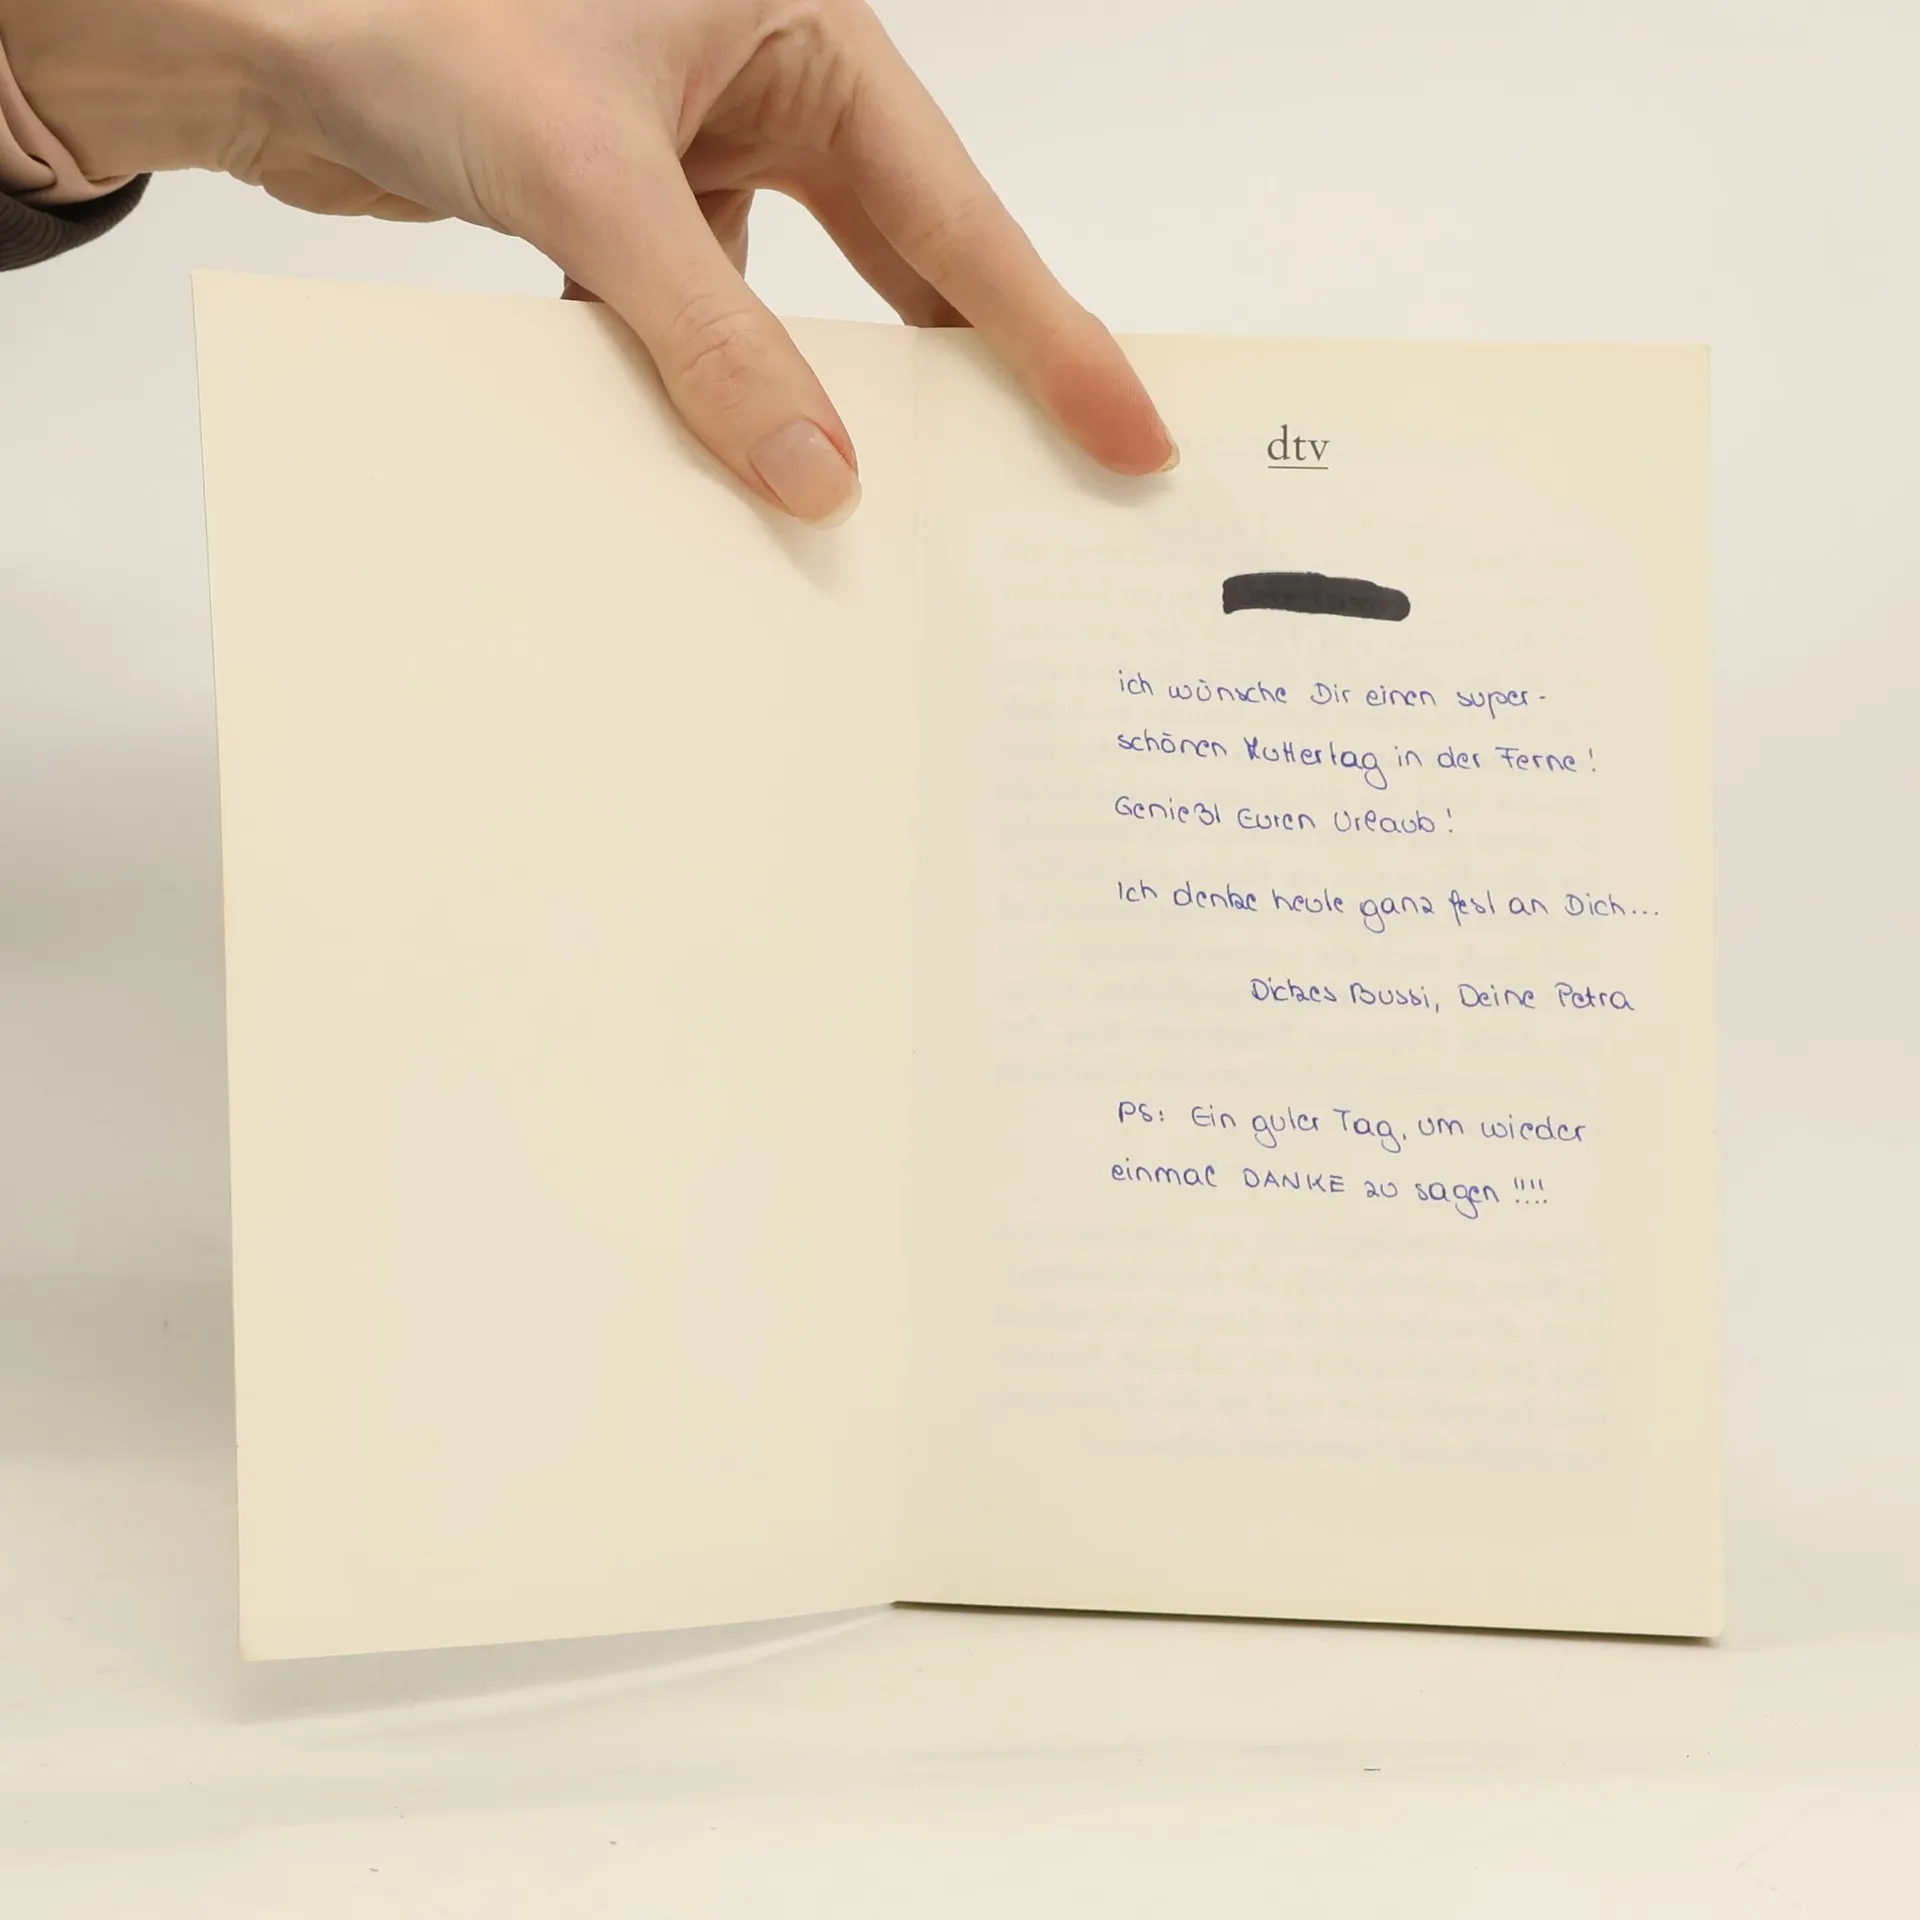 dtv
ich wünsche Dir einen super-
schönen Muttertag in der Ferne!
Genießt Euren Urlaub!
Ich denke heute ganz fest an Dich...
Dickes Bussi, Deine Petra
PS: Ein guter Tag, um wieder
einmal DANKE zu sagen !!!!